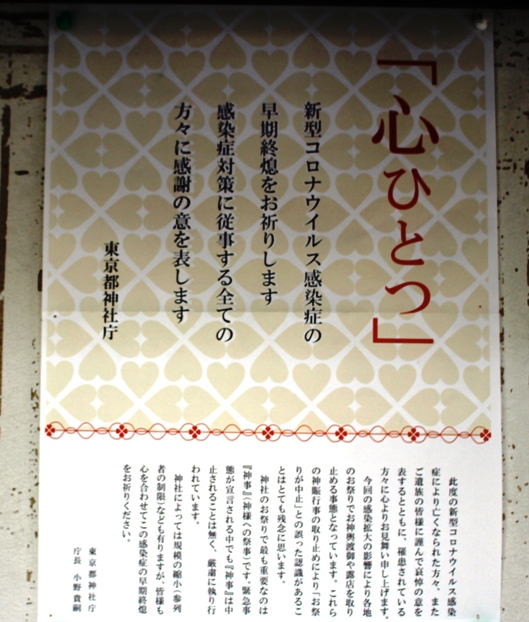 「心ひとつ」
新型コロナウイルス感染症の
早期終熄をお祈りします
感染症対策に従事する全ての
方々に感謝の意を表します
東京都神社庁
此度の新型コロナウイルス感染
症により亡くなられた方々、また
ご遺族の皆様に謹んで哀悼の意を
表するとともに、罹患されている
方々に心よりお見舞い申し上げます。
今回の感染拡大の影響により各地
のお祭りでお神輿渡御や露店を取り
止める事態となっています。これら
の神賑行事の取り止めにより「お祭
りが中止」との誤った認識があるこ
とはとても残念に思います。
神社のお祭りで最も重要なのは
『神事』(神様への祭事)です。緊急事
態が宣言される中でも『神事』は中
止されることは無く、厳粛に執り行
われています。
神社によっては規模の縮小(参列
者の制限)なども有りますが、皆様も
心を合わせてこの感染症の早期終熄
をお祈りください。
東京都神社庁
庁長 小野貴嗣